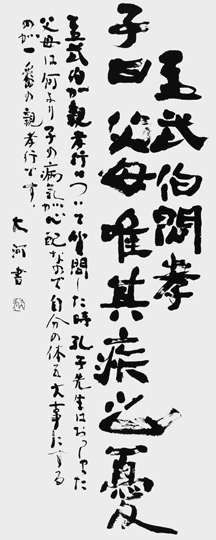 孟武伯問孝
子曰父母唯其疾之憂
孟武伯が親孝行について質問した時孔子先生はおっしゃった
父母は何より子の病気が心配なので自分の体を大事にする
のが一番の親孝行です。
大河書